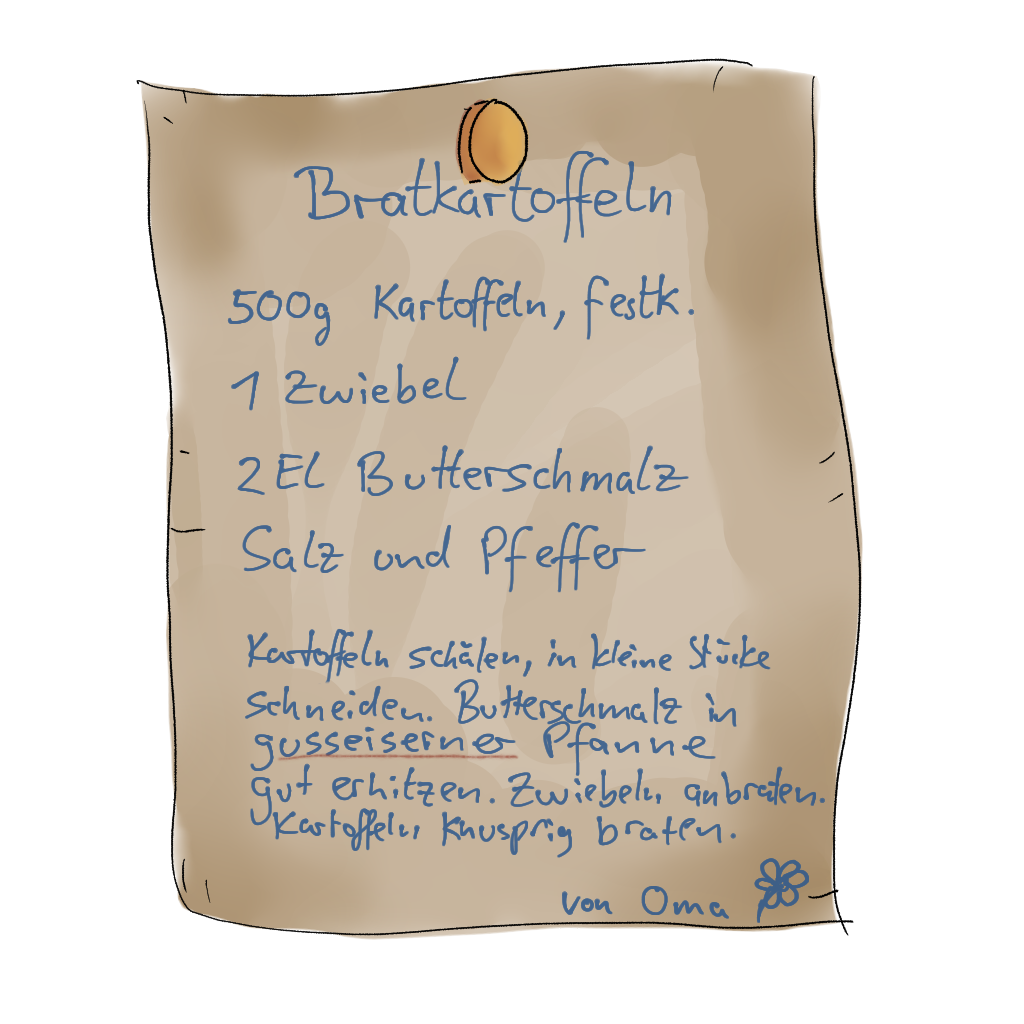 Bratkartoffeln
500g Kartoffeln, festk.
1 Zwiebel
2 EL Butterschmalz
Salz und Pfeffer
Kartoffeln schälen, in kleine Stücke
schneiden. Butterschmalz in
gusseiserner Pfanne
gut erhitzen. Zwiebeln anbraten.
Kartoffeln knusprig braten.
von Oma